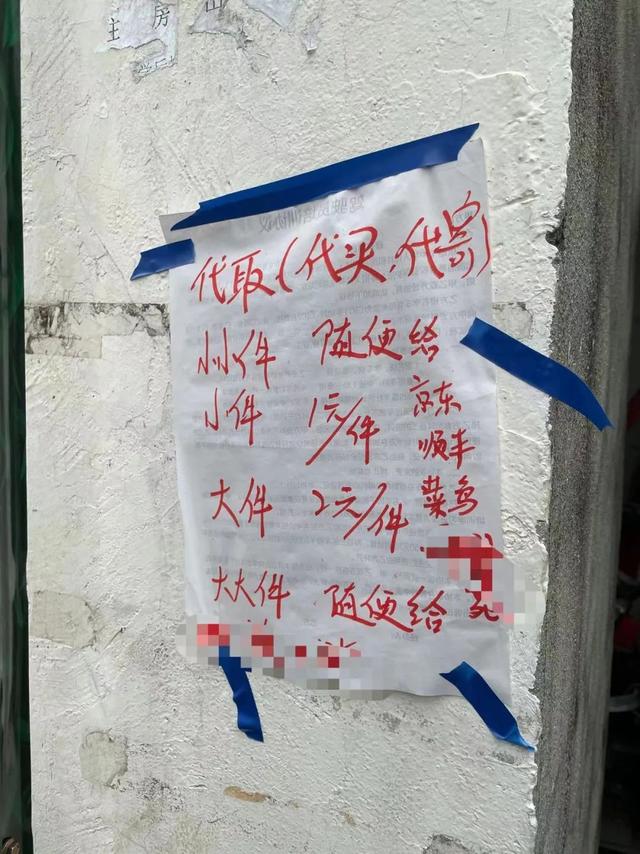 主 房
代取(代买,代寄)
小小件 随便给
小件 1元/件 京东
顺丰
大件 2元/件 菜鸟
大大件 随便给